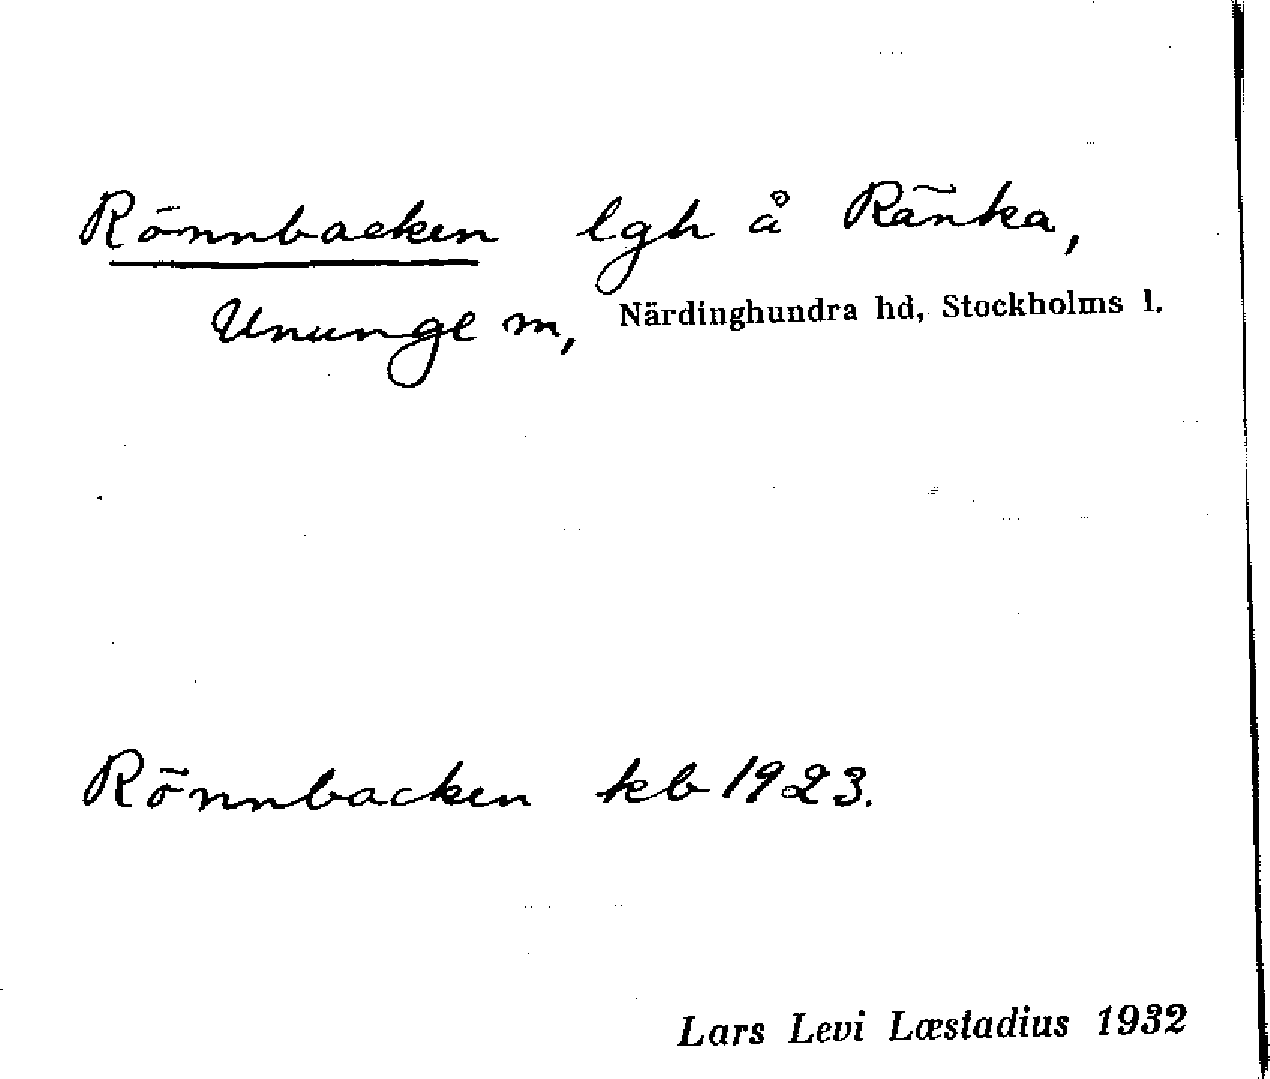 Rönnbacken lgh å Ränka,
Ununge m, Närdinghundra hd, Stockholms l.
Rönnbacken kb 1923.
Lars Levi Læstadius 1932